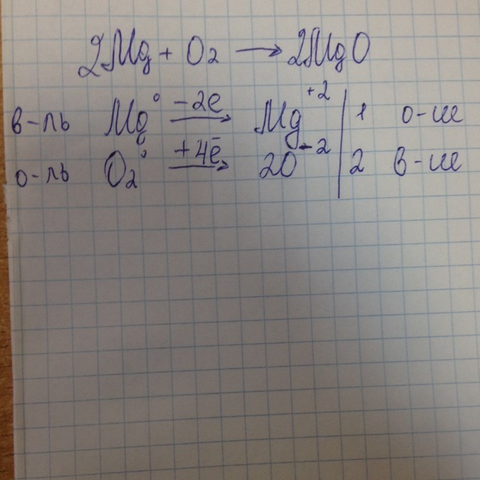 2Mg + O₂ → 2MgO
в-ль Mg⁰ -2e → Mg⁺² | 1 о-ие
о-ль O₂⁰ +4ē → 2O⁻² | 2 в-ие